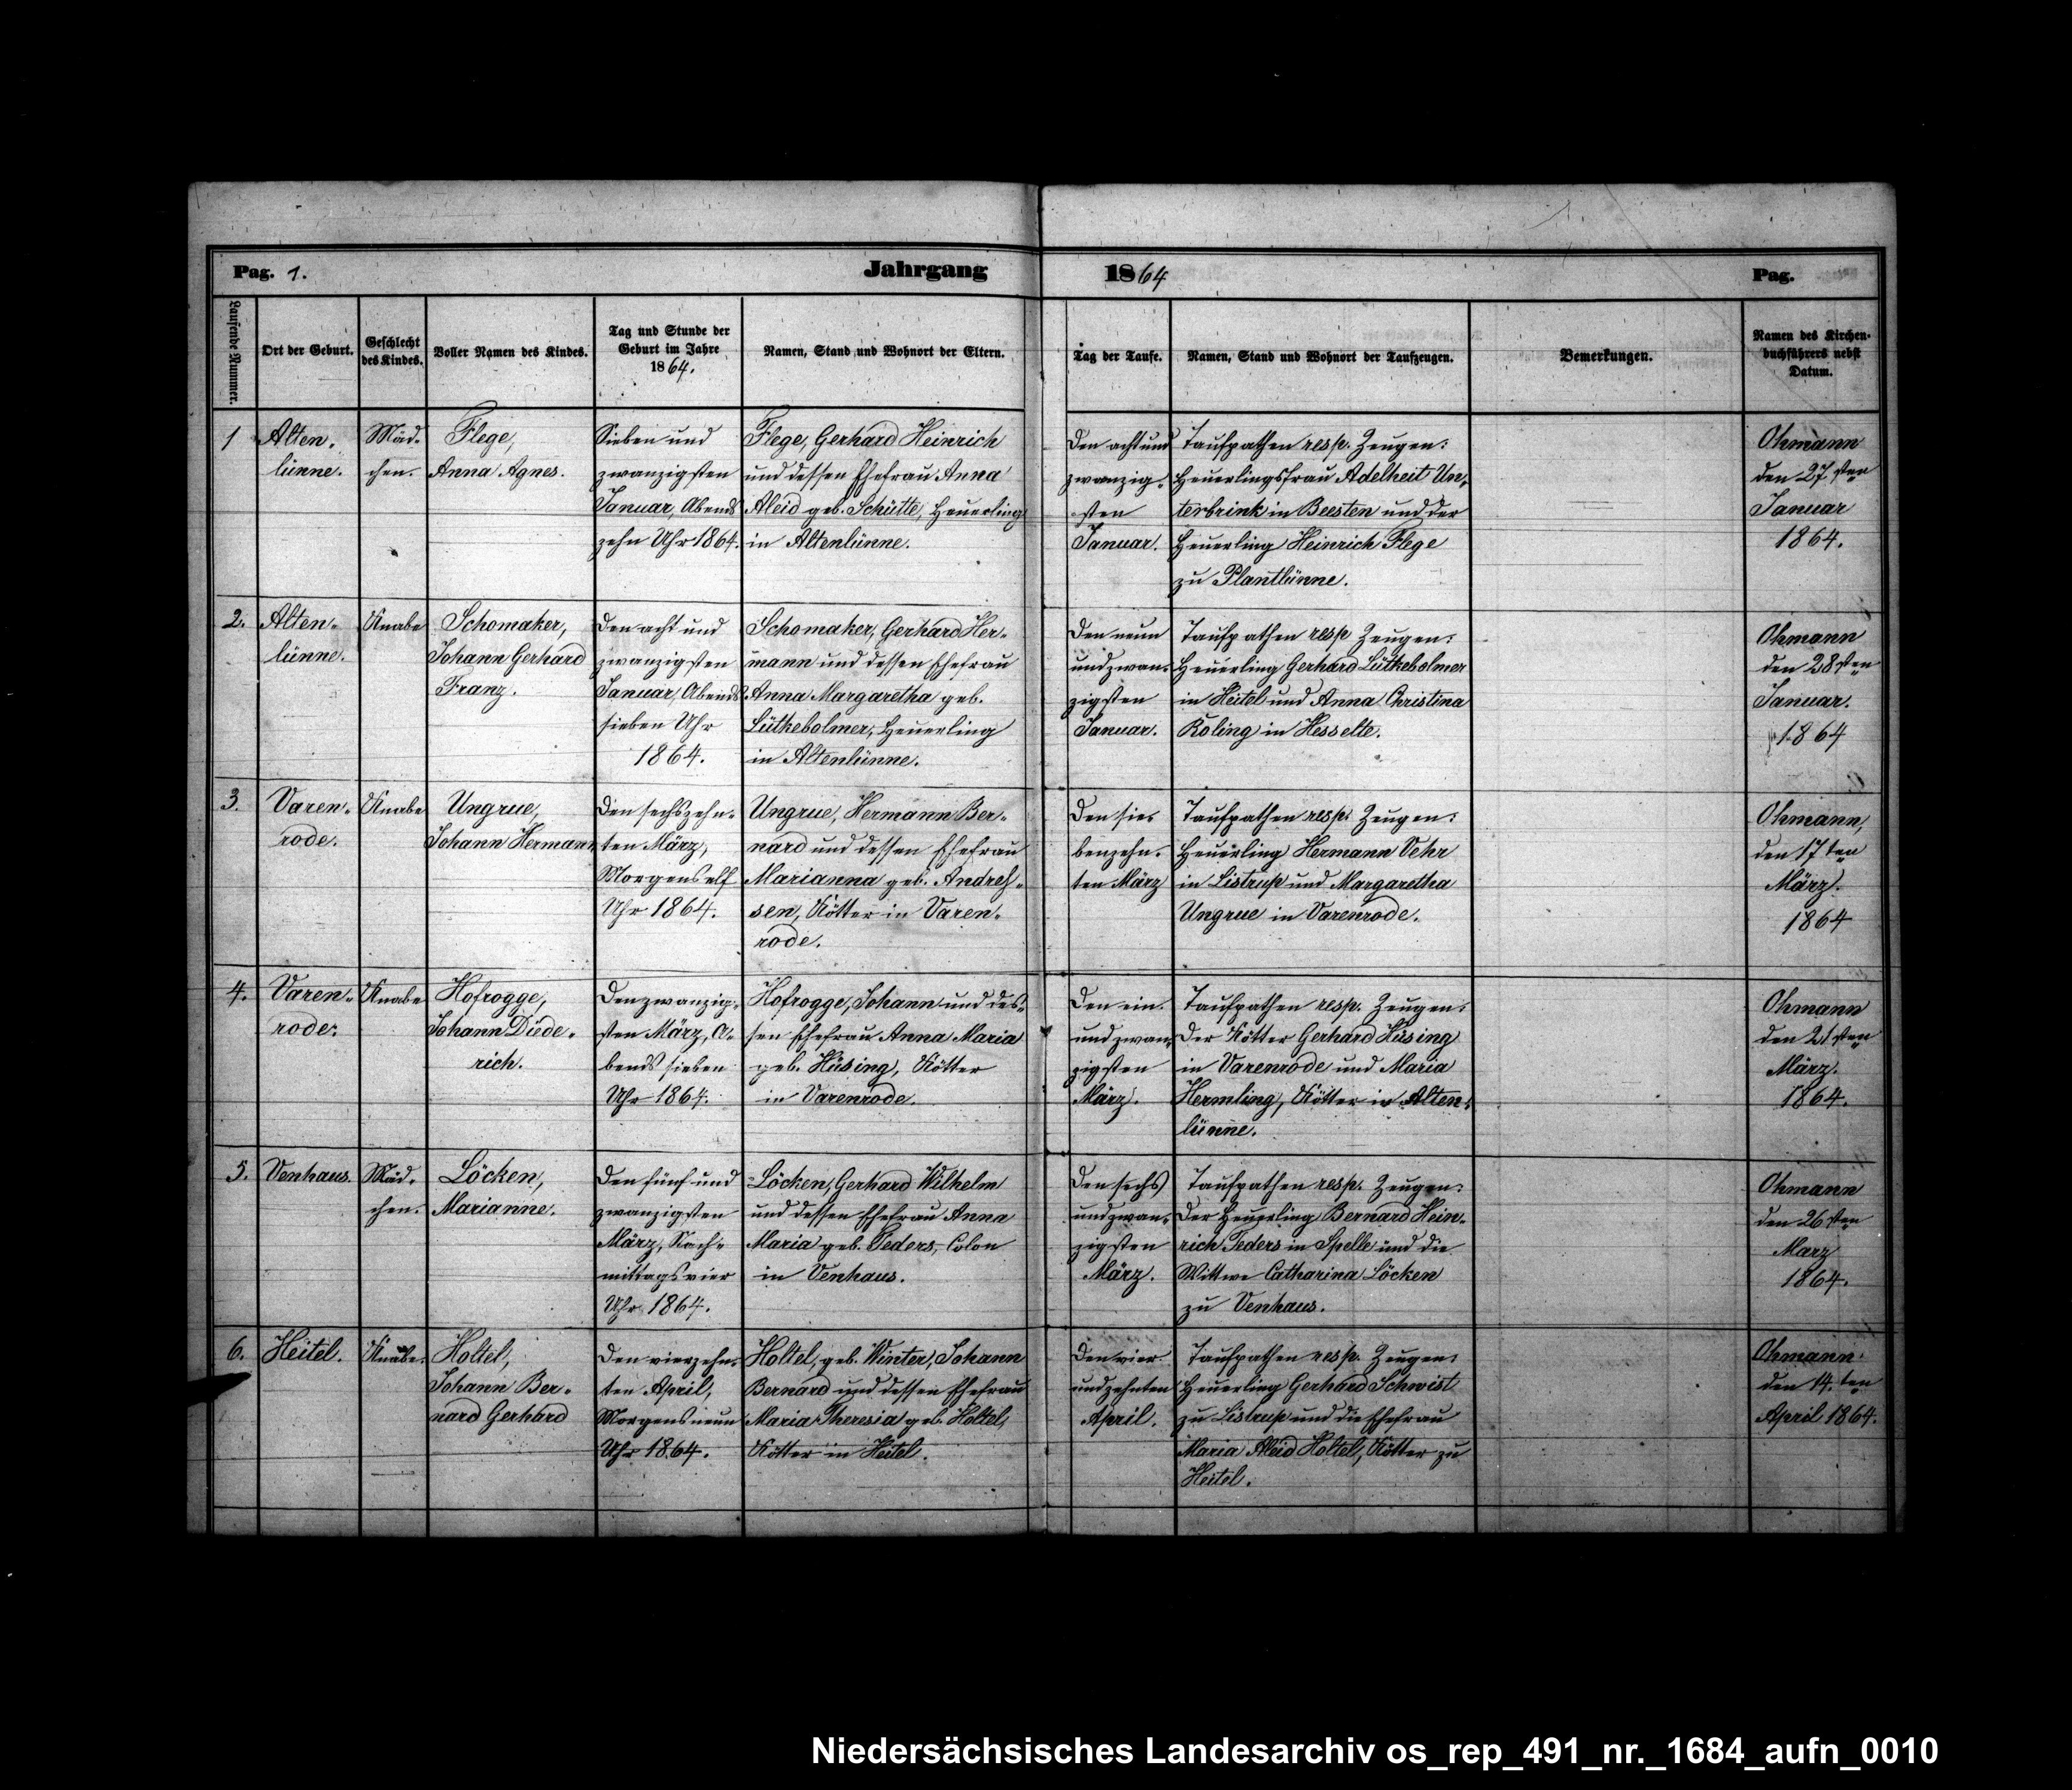 Pag. 1.
Jahrgang
1864
Pag.
Laufende Nummer.
Ort der Geburt.
Geschlecht
des Kindes.
Voller Namen des Kindes.
Tag und Stunde der
Geburt im Jahre
1864.
Namen, Stand und Wohnort der Eltern.
Tag der Taufe.
Namen, Stand und Wohnort der Taufzeugen.
Bemerkungen.
Namen des Kirchen-
buchführers nebst
Datum.
1
Alten-
lünne.
Mäd-
chen.
Flege,
Anna Agnes.
Sieben und
zwanzigsten
Januar, Abends
zehn Uhr 1864.
Flege, Gerhard Heinrich
und dessen Ehefrau Anna
Aleid geb. Schütte, Heuerling
in Altenlünne.
Den acht und
zwanzig-
sten
Januar.
Taufpathen resp. Zeugen:
Heuerlingsfrau Adelheit Un-
terbrink in Beesten und der
Heuerling Heinrich Flege
zu Plantlünne.
Ohmann
den 27sten
Januar
1864.
2.
Alten-
lünne.
Knabe
Schomaker,
Johann Gerhard
Franz.
Den acht und
zwanzigsten
Januar, Abends
sieben Uhr
1864.
Schomaker, Gerhard Her-
mann und dessen Ehefrau
Anna Margaretha geb.
Lütkebolmer, Heuerling
in Altenlünne.
Den neun
und zwan-
zigsten
Januar.
Taufpathen resp Zeugen:
Heuerling Gerhard Lütkebolmer
in Heitel und Anna Christina
Roling in Hesselte.
Ohmann
den 28sten
Januar.
1864
3.
Varen-
rode.
Knabe
Ungrue,
Johann Hermann
Den sechszehn-
ten März,
Morgens elf
Uhr 1864.
Ungrue, Hermann Ber-
nard und dessen Ehefrau
Marianna geb. Andreß-
sen, Kötter in Varen-
rode.
Den sie-
benzehn-
ten März
Taufpathen resp. Zeugen:
Heuerling Hermann Vehr
in Listrup und Margaretha
Ungrue in Varenrode.
Ohmann,
den 17ten
März.
1864
4.
Varen-
rode.
Knabe
Hofrogge,
Johann Diede-
rich.
Den zwanzig-
sten März, A-
bends sieben
Uhr 1864.
Hofrogge, Johann und des-
sen Ehefrau Anna Maria
geb. Hüsing, Kötter
in Varenrode.
Den ein-
und zwan-
zigsten
März.
Taufpathen resp. Zeugen:
Der Kötter Gerhard Hüsing
in Varenrode und Maria
Hermling, Kötter in Alten-
lünne.
Ohmann
den 21sten
März.
1864.
5.
Venhaus.
Mäd-
chen.
Löcken,
Marianne.
Den fünf und
zwanzigsten
März, Nach-
mittags vier
Uhr 1864.
Löcken, Gerhard Wilhelm
und dessen Ehefrau Anna
Maria geb. Teders, Colon
in Venhaus.
Den sechs
und zwan-
zigsten
März.
Taufpathen resp. Zeugen:
Der Heuerling Bernard Hein-
rich Teders in Spelle und die
Wittwe Catharina Löcken
zu Venhaus.
Ohmann
den 26sten
Marz
1864.
6.
Heitel.
Knabe.
Holtel,
Johann Ber-
nard Gerhard
Den vierzehn-
ten April,
Morgens neun
Uhr 1864.
Holtel, geb. Winter, Johann
Bernard und dessen Ehefrau
Maria Theresia geb. Holtel,
Kötter in Heitel.
Den vier
und zehnten
April.
Taufpathen resp. Zeugen:
Heuerling Gerhard Schwist
zu Listrup und die Ehefrau
Maria Aleid Holtel, Kötter zu
Heitel.
Ohmann
den 14.ten
April 1864.
Niedersächsisches Landesarchiv os_rep_491_nr._1684_aufn_0010